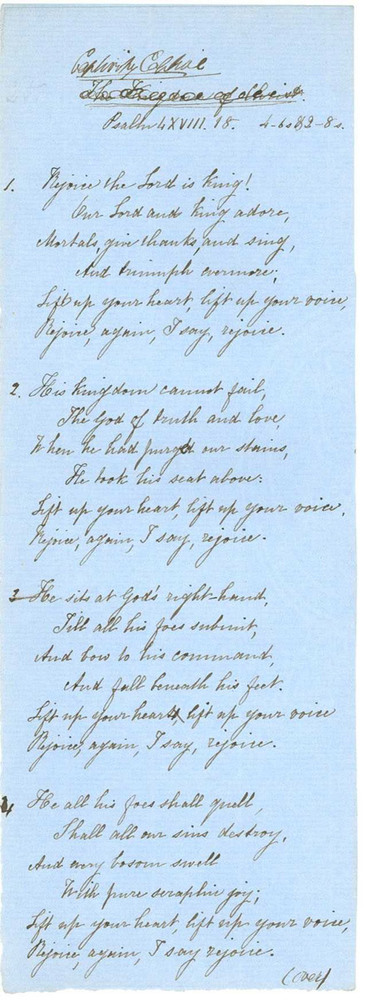 Captivity Captive
The Kingdom of Christ.
Psalm LXVIII. 18. 4-6s & 2-8s.
1. Rejoice the Lord is King!
Our Lord and King adore,
Mortals, give thanks, and sing,
And triumph evermore;
Lift up your heart, lift up your voice,
Rejoice, again, I say, rejoice.
2. His kingdom cannot fail,
The God of truth and love,
When he had purged our stains,
He took his seat above:
Lift up your heart, lift up your voice,
Rejoice, again, I say, rejoice.
3 He sits at God's right-hand,
Till all his foes submit,
And bow to his command,
And fall beneath his feet.
Lift up your heart, lift up your voice
Rejoice, again, I say, rejoice.
4 He all his foes shall quell,
Shall all our sins destroy,
And every bosom swell
With pure seraphic joy;
Lift up your heart, lift up your voice,
Rejoice, again, I say rejoice.
(over)